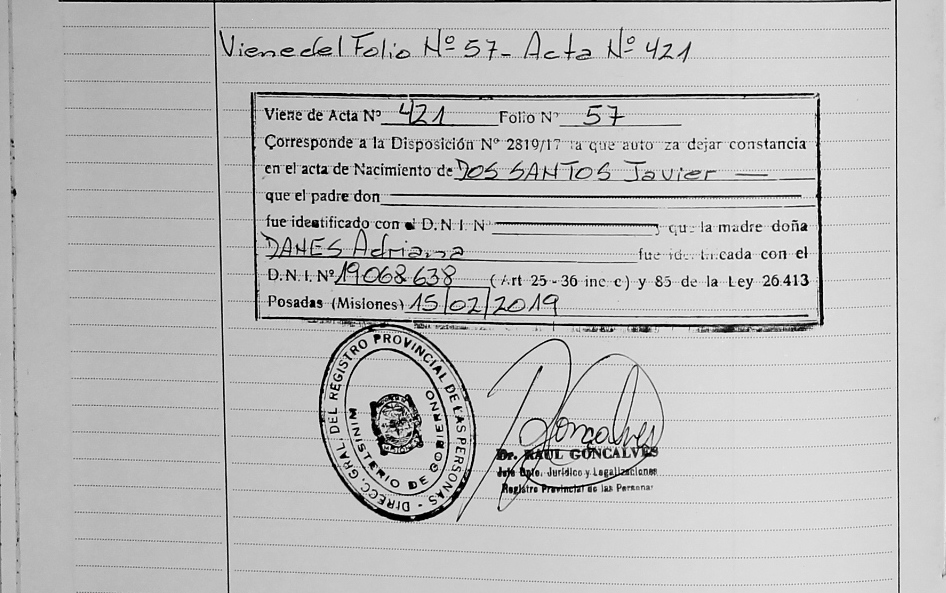 Viene del Folio Nº 57 - Acta Nº 421
Viene de Acta Nº 421 Folio Nº 57
Corresponde a la Disposición Nº 2819/17 la que auto za dejar constancia
en el acta de Nacimiento de DOS SANTOS Javier —
que el padre don
fue identificado con el D.N.I. Nº que la madre doña
DANES Adriana fue iden ticada con el
D.N.I. Nº 19068638 (Art 25 - 36 inc c) y 85 de la Ley 26.413
Posadas (Misiones) 15/02/2019
DIRECC. GRAL. DEL REGISTRO PROVINCIAL DE LAS PERSONAS -
MINISTERIO DE GOBIERNO
Goncalves
Dr. RAUL GONCALVES
Jefe Dpto. Jurídico y Legalizaciones
Registro Provincial de las Personas